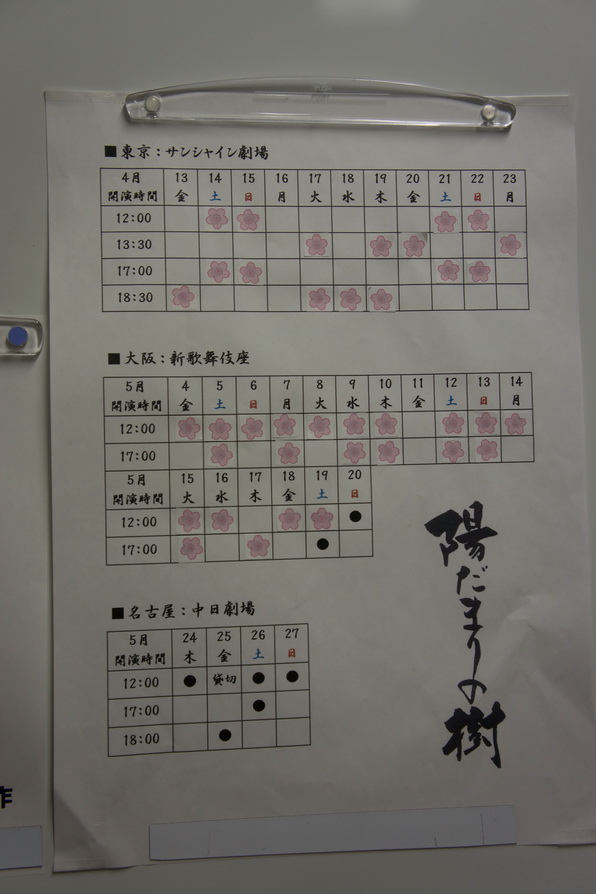 ■東京：サンシャイン劇場
4月 13 14 15 16 17 18 19 20 21 22 23
開演時間 金 土 日 月 火 水 木 金 土 日 月
12:00
13:30
17:00
18:30
■大阪：新歌舞伎座
5月 4 5 6 7 8 9 10 11 12 13 14
開演時間 金 土 日 月 火 水 木 金 土 日 月
12:00
17:00
5月 15 16 17 18 19 20
開演時間 火 水 木 金 土 日
12:00 ●
17:00 ●
■名古屋：中日劇場
5月 24 25 26 27
開演時間 木 金 土 日
12:00 ● 貸切 ● ●
17:00 ●
18:00 ●
陽だまりの樹
作